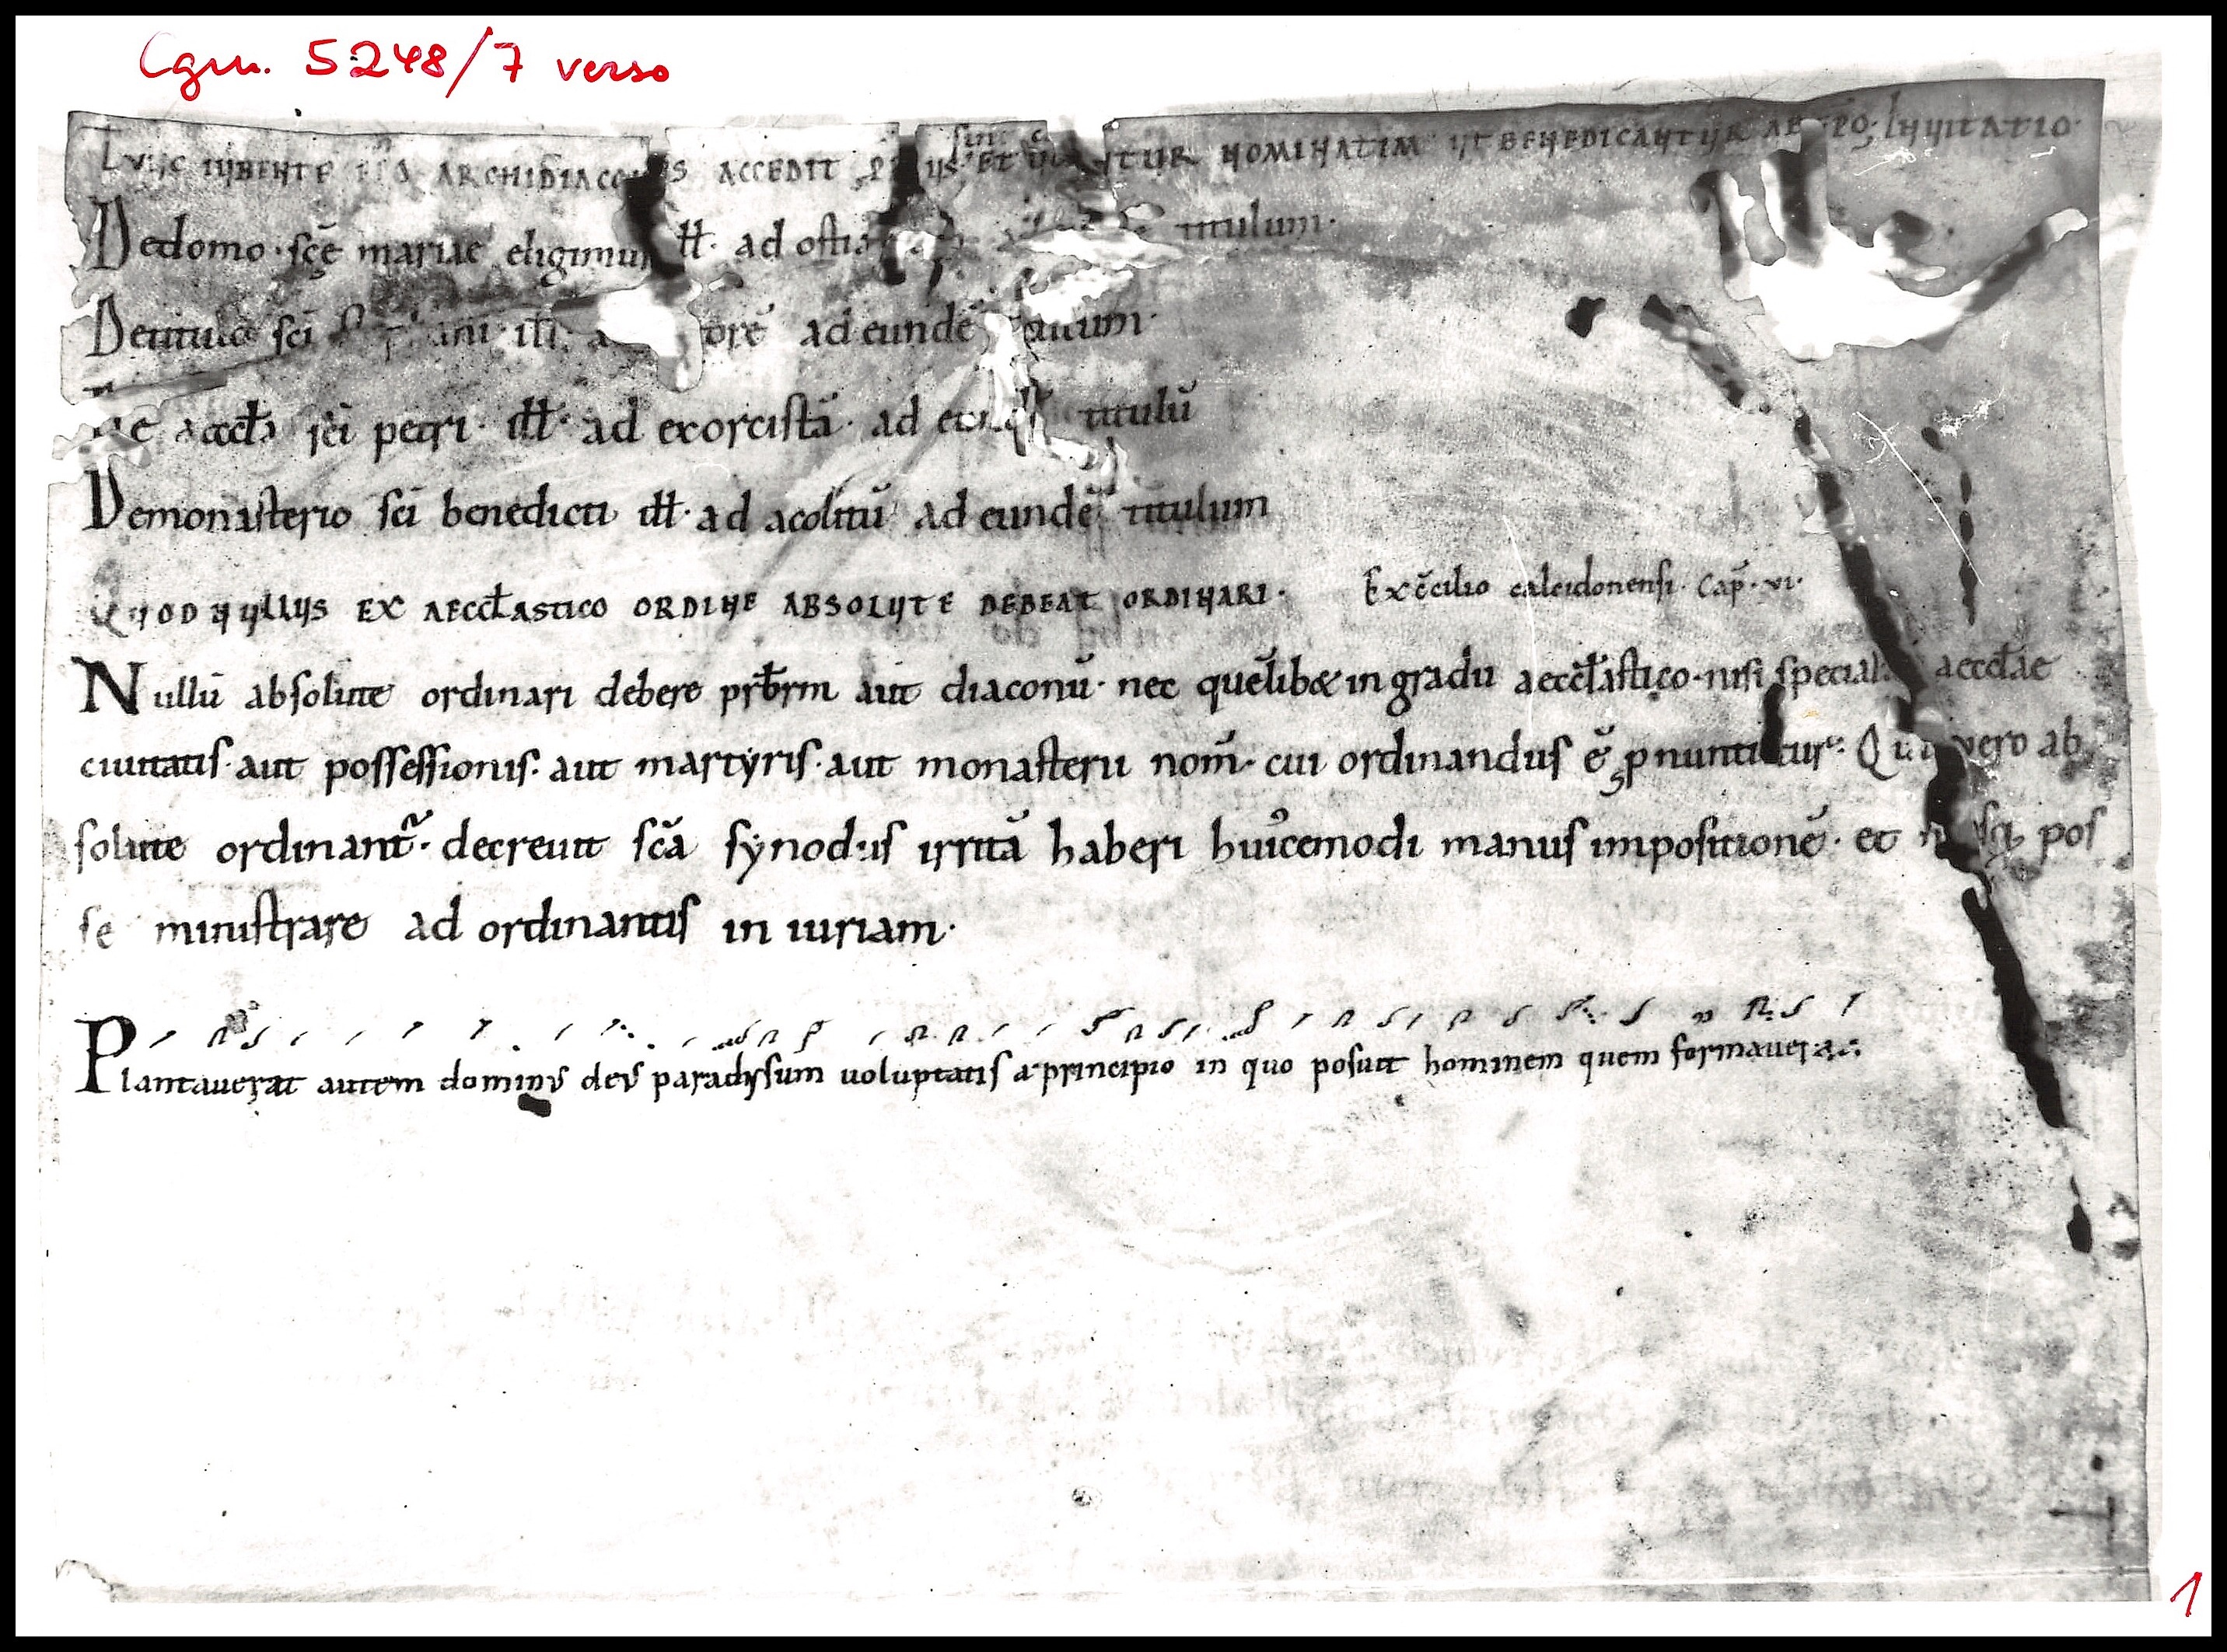 Cgm. 5248/7 verso
IUBENTE EPO ARCHIDIACO S ACCEDIT ET NOMINATIM UT BENEDICANTUR AB EPO. INUITATIO.
Dedomo· sc̄e mariae eligimus ill̄· ad titulum·
Detitulo sci ill̄ ad eundē
accl̄a sc̄i petri· ill̄· ad exorcistā· ad titulū
Demonasterio sc̄i benedicti ill̄· ad acolitū ad eundē titulum
QUOD NULLUS EX AECCL̄ASTICO ORDINE ABSOLUTE DEBEAT ORDINARI· Ex c̄cilio calcidonensi· Cap̄· vi·
Nullū absolute ordinari debere prb̄rm aut diaconū· nec quēlib& in gradu aeccl̄astico· nisi speciali aeccl̄ae
ciuitatis· aut possessionis· aut martyris· aut monasterii nom̄· cui ordinandus ē· ꝓnuntietur· Qui vero ab
solute ordinant̄· decreuit sc̄a synodus irritā haberi huicemodi manus impositionē· et pos
se ministrare ad ordinantis in iuriam·
Plantauerat autem dominus deus paradysum uoluptatis a principio in quo posuit hominem quem formauerat·
1